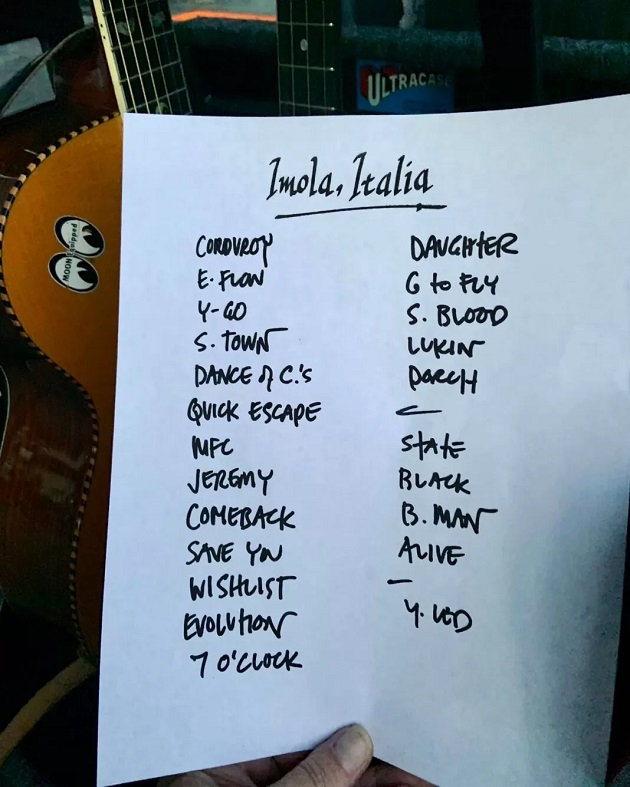 ULTRACASE
MOON Equipped
Imola, Italia
CORDUROY
E. FLOW
Y-GO
S. TOWN
DANCE of C.'S
QUICK ESCAPE
MFC
JEREMY
COMEBACK
SAVE YOU
WISHLIST
EVOLUTION
7 O'CLOCK
DAUGHTER
G to FLY
S. BLOOD
LUKIN
PORCH
STATE
BLACK
B. MAN
ALIVE
Y. LED